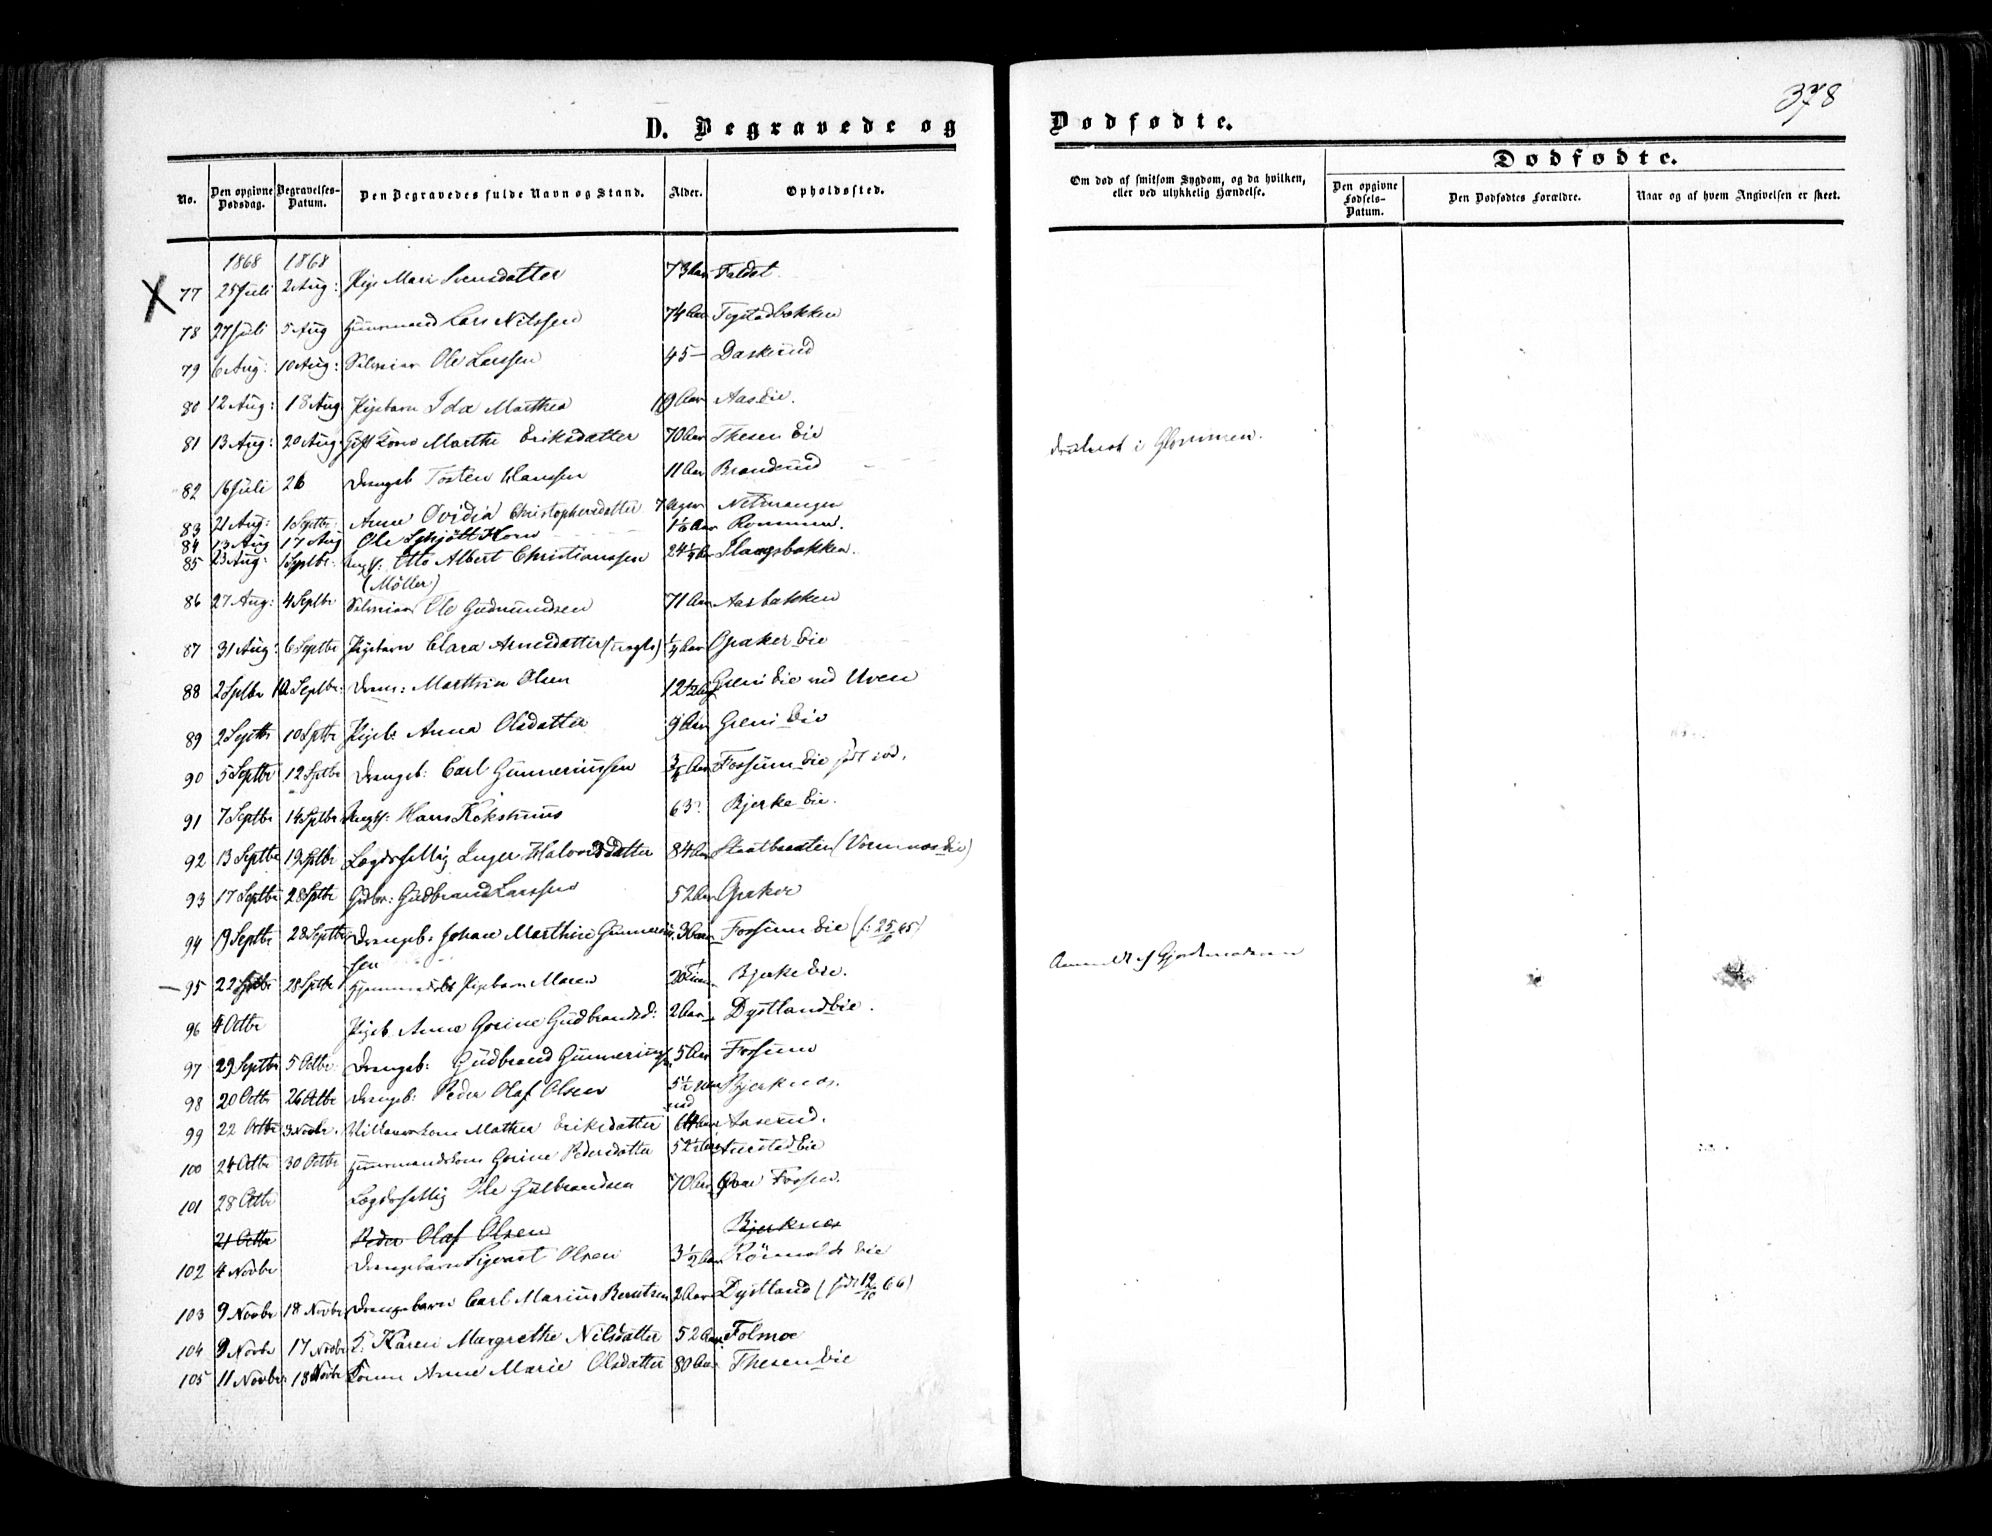 378
D. Begravede og Dødfødte.
Dødfødte.
No. Den opgivne Dødsdag. Begravelses-Datum. Den Begravedes fulde Navn og Stand. Alder. Opholdssted. Om død af smitsom Sygdom, og da hvilken, eller ved ulykkelig Hændelse. Den opgivne Fødsels-Datum. Den Dødfødtes Forældre. Naar og af hvem Angivelsen er skeet.
1868 1868
X 77 25 Juli 2 Aug: Pige Mari Svensdatter 73 Aar Faldet
78 27 Juli 5 Aug Huusmand Lars Nilssen 74 Aar Togstadbakken
79 6 Aug: 10 Aug: Selveier Ole Larssen 45 — Daskerud
80 12 Aug: 18 Aug Pigebarn Ida Marthea Aar Aas Eie.
81 13 Aug: 20 Aug Gift Kone Marthe Eriksdatter 70 Aar Thesen Eie
82 16 Juli 26 Drengeb Tosten Hanssen 11 Aar Branderud druknet i Glommen.
83 21 Aug: 1 Septbr: Anne Ovidia Christophersdatter 7 Netmangen
84 13 Aug 17 Aug Ole Schjøtt Horn Aar Rommen.
85 23 Aug: 1 Septbr: Ungk: Otto Albert Christianssen 24 ½ Aar Slaugsbakken.
(Møller)
86 27 Aug: 4 Septbr Selveier Ole Gudmundsen 71 Aar Aasbakken
87 31 Aug: 6 Septbr Pigebarn Clara Arnesdatter (uægte) ¼ Aar Opaker Eie
88 2 Septbr 10 Septbr: Dreng: Marthin Olsen 12 ½ Greni Eie ved Uven
89 2 Septbr 10 Septbr Pigeb: Anna Olsdatter 9 Aar Greni Eie
90 5 Septbr 12 Septbr Drengeb: Carl Gunneriussen Aar Fossum Eie født
91 7 Septbr 14 Septbr Hans Kokshuus 63 Bjerke Eie.
92 13 Septbr 19 Septbr Lægdsfattig Inger Halvorsdatter 84 Aar Staatbraaten (Vormnæs Eie)
93 17 Septbr 28 Septbr Gdbr: Gudbrand Larssen 52 Aar Opaker
94 19 Septbr 28 Septbr Drengeb: Johan Marthin Gunneriussen 3 Aar Fossum Eie (f: 25 65)
95 22 Septbr 28 Septbr Hjemmedøbt Pigebarn Maren Bjerke Eie. Anmeldt af Gjordemoderen
96 4 Octbr Pigeb. Anne Gorine Gudbrandsd: 2 Aar Dystland Eie.
97 29 Septbr 5 Octbr Drengeb: Gudbrand Gunneriussen 5 Aar Fossum
98 20 Octbr 26 Octbr Drengeb: Peder Olaf Olsen 5 ½ Bjerknæs.
99 22 Octbr 3 Novbr. Mathea Eriksdatter 64 Aar Aaserud.
100 24 Octbr 30 Octbr Huusmandskone Gorine Pedersdatter 52 ½ Aar Aurstad Eie
101 28 Octbr Lægdsfattig Ole Gulbrandsen 70 Aar Øvre Fossen.
21 Octbr Peder Olaf Olsen Bjerknæs
102 4 Novbr Drengebarn Sigvart Olsen 3 ½ Aar Eie
103 9 Novbr 18 Novbr Drengebarn Carl Marius Berntsen 2 Aar Dystland (født 12/10 66)
104 9 Novbr 17 Novbr E. Karen Margrethe Nilsdatter 52 Aar Folmoe
105 11 Novbr 18 Novbr Konen Anne Marie Olsdatter 80 Aar Thesen Eie